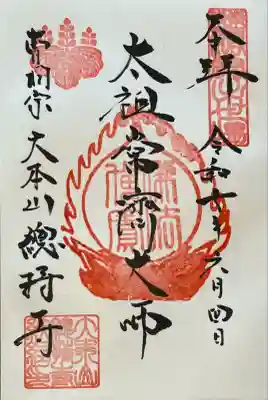 奉拝 令和六年六月四日
太祖常濟大師
曹洞宗 大本山總持寺